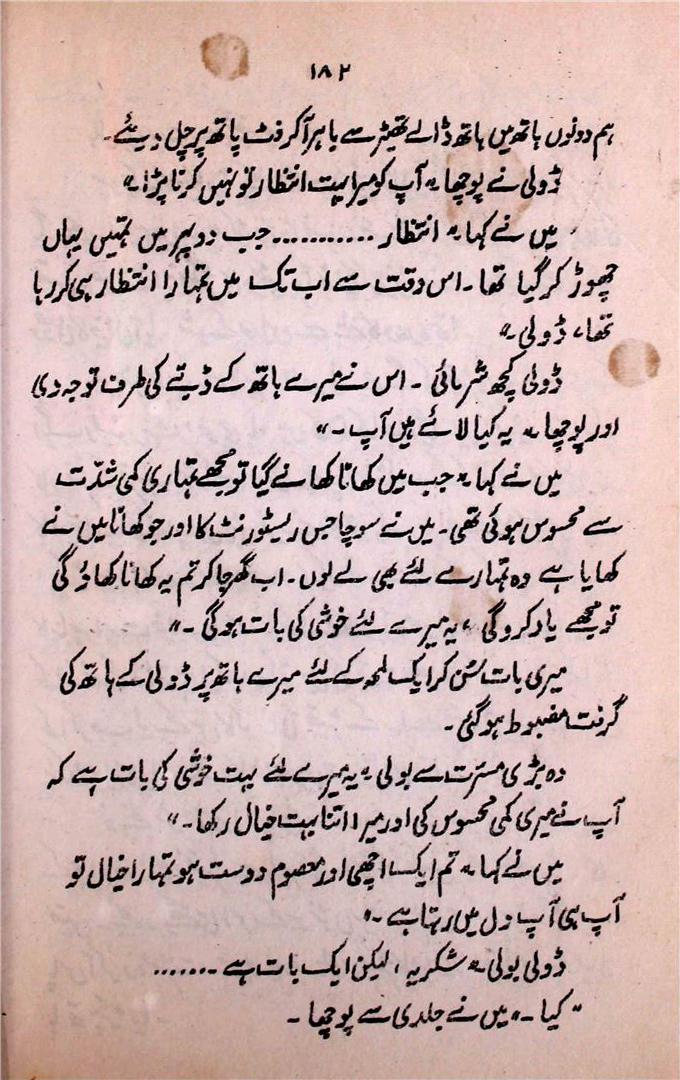 ۱۸۲
ہم دونوں ہاتھ میں ہاتھ ڈالے تھیٹر سے باہر آکر فٹ پاتھ پر چل دیئے۔
ڈولی نے پوچھا "آپ کو میرا بہت انتظار تو نہیں کرنا پڑا"
میں نے کہا "انتظار ........... جب دوپہر میں تمہیں یہاں
چھوڑ کر گیا تھا۔ اس وقت سے اب تک میں تمہارا انتظار ہی کر رہا
تھا، ڈولی۔"
ڈولی کچھ شرمائی ۔ اس نے میرے ہاتھ کے ڈبے کی طرف توجہ دی
اور پوچھا "یہ کیا لائے ہیں آپ۔"
میں نے کہا "جب میں کھانا کھانے گیا تو مجھے تمہاری کمی شدّت
سے محسوس ہوئی تھی۔ میں نے سوچا جس ریسٹورنٹ کا اور جو کھانا میں نے
کھایا ہے وہ تمہارے لئے بھی لے لوں۔ اب گھر جا کر تم یہ کھانا کھاؤ گی
تو مجھے یاد کرو گی، یہ میرے لئے خوشی کی بات ہوگی۔"
میری بات سُن کر ایک لمحہ کے لئے میرے ہاتھ پر ڈولی کے ہاتھ کی
گرفت مضبوط ہوگئی۔
وہ بڑی مسرّت سے بولی "یہ میرے لئے بہت خوشی کی بات ہے کہ
آپ نے میری کمی محسوس کی اور میرا اتنا بہت خیال رکھا۔"
میں نے کہا "تم ایک اچھی اور معصوم دوست ہو تمہارا خیال تو
آپ ہی آپ دل میں رہتا ہے۔"
ڈولی بولی "شکریہ، لیکن ایک بات ہے .......
"کیا۔" میں نے جلدی سے پوچھا۔